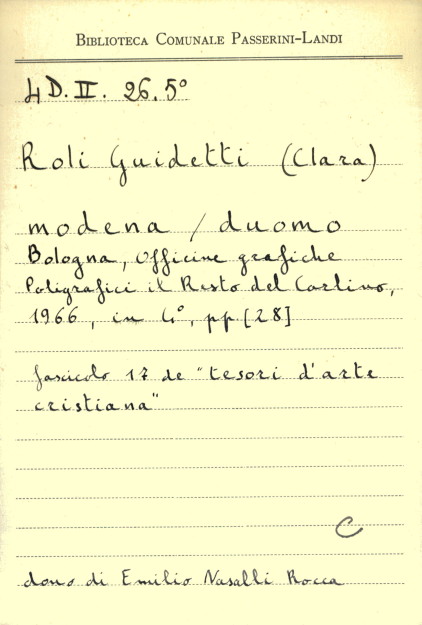 Biblioteca Comunale Passerini-Landi
4 D. II. 26. 5°
Roli Guidetti (Clara)
modena / duomo
Bologna, Officine grafiche
Poligrafici il Resto del Carlino,
1966, in 4°, pp [28]
fascicolo 17 de "tesori d'arte
cristiana"
C
dono di Emilio Nasalli Rocca